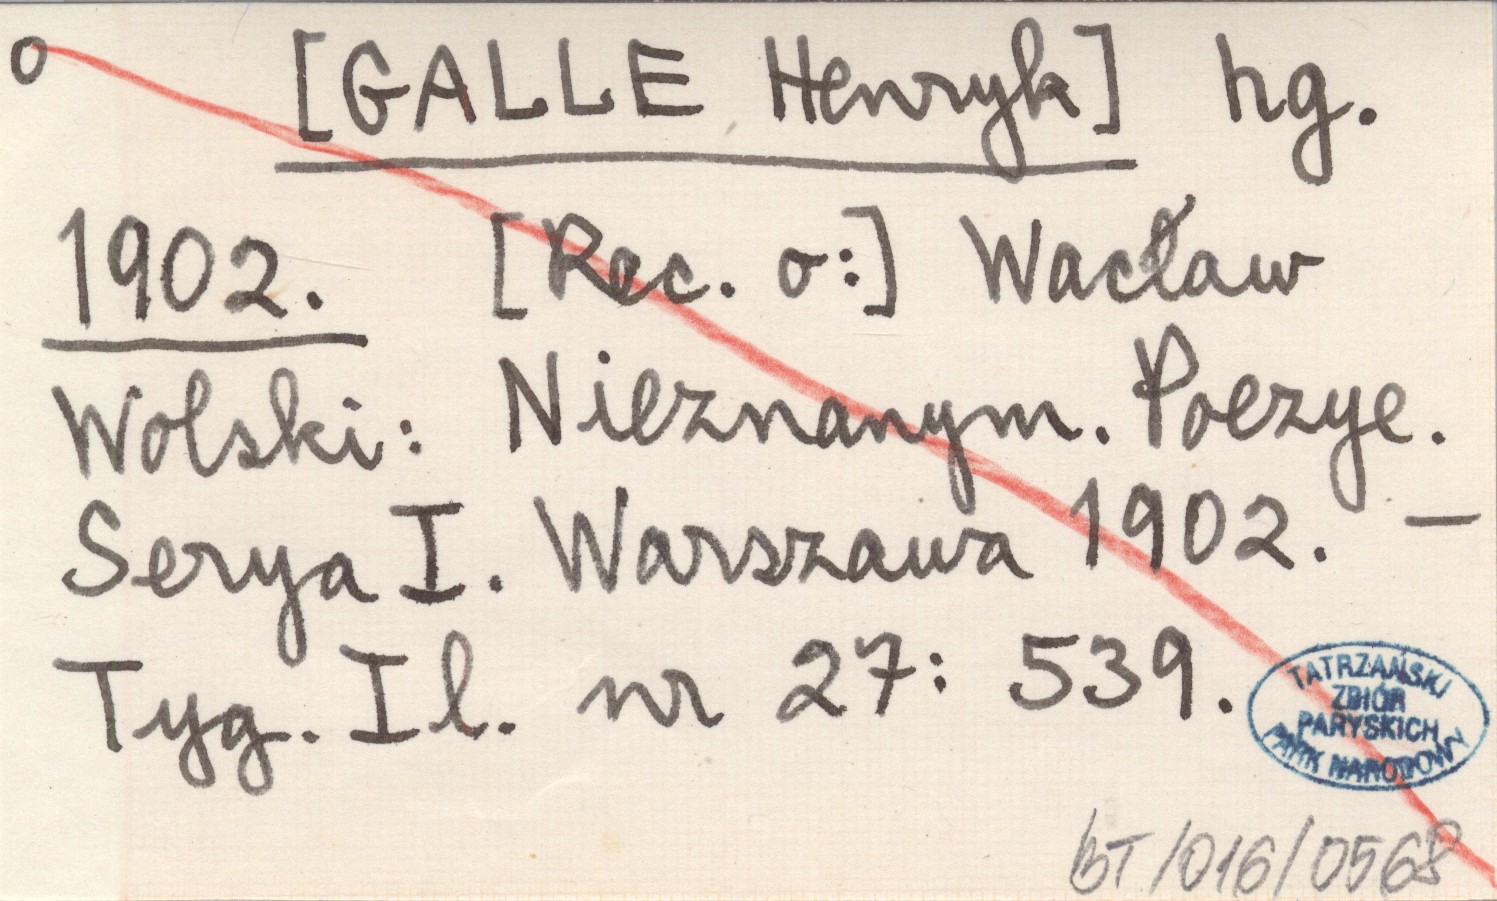 o [GALLE Henryk] hg.
1902. [Rec. o:] Wacław
Wolski: Nieznanym. Poezye.
Serya I. Warszawa 1902. —
Tyg. Il. nr 27: 539.
TATRZAŃSKI
ZBIÓR
PARYSKICH
PARK NARODOWY
BT/016/0568